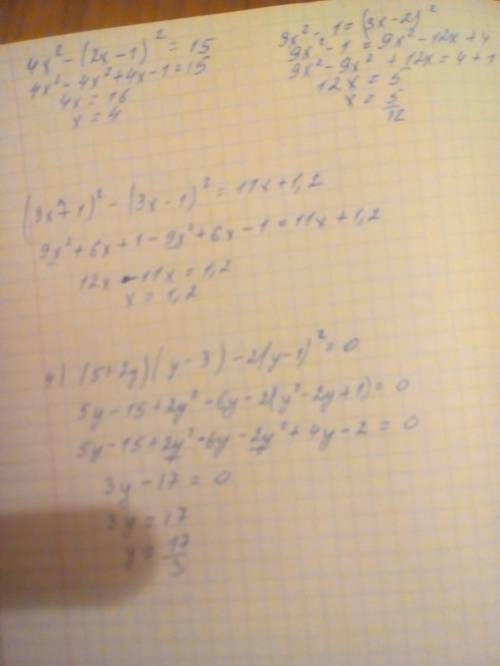 4x² - (2x-1)² = 15
4x² - 4x² + 4x - 1 = 15
4x = 16
x = 4
9x² - 1 = (3x-2)²
9x² - 1 = 9x² - 12x + 4
9x² - 9x² + 12x = 4 + 1
12x = 5
x = 5/12
(3x+1)² - (3x-1)² = 11x + 1,2
9x² + 6x + 1 - 9x² + 6x - 1 = 11x + 1,2
12x - 11x = 1,2
x = 1,2
4) (5+2y)(y-3) - 2(y-1)² = 0
5y - 15 + 2y² - 6y - 2(y² - 2y + 1) = 0
5y - 15 + 2y² - 6y - 2y² + 4y - 2 = 0
3y - 17 = 0
3y = 17
y = 17/3